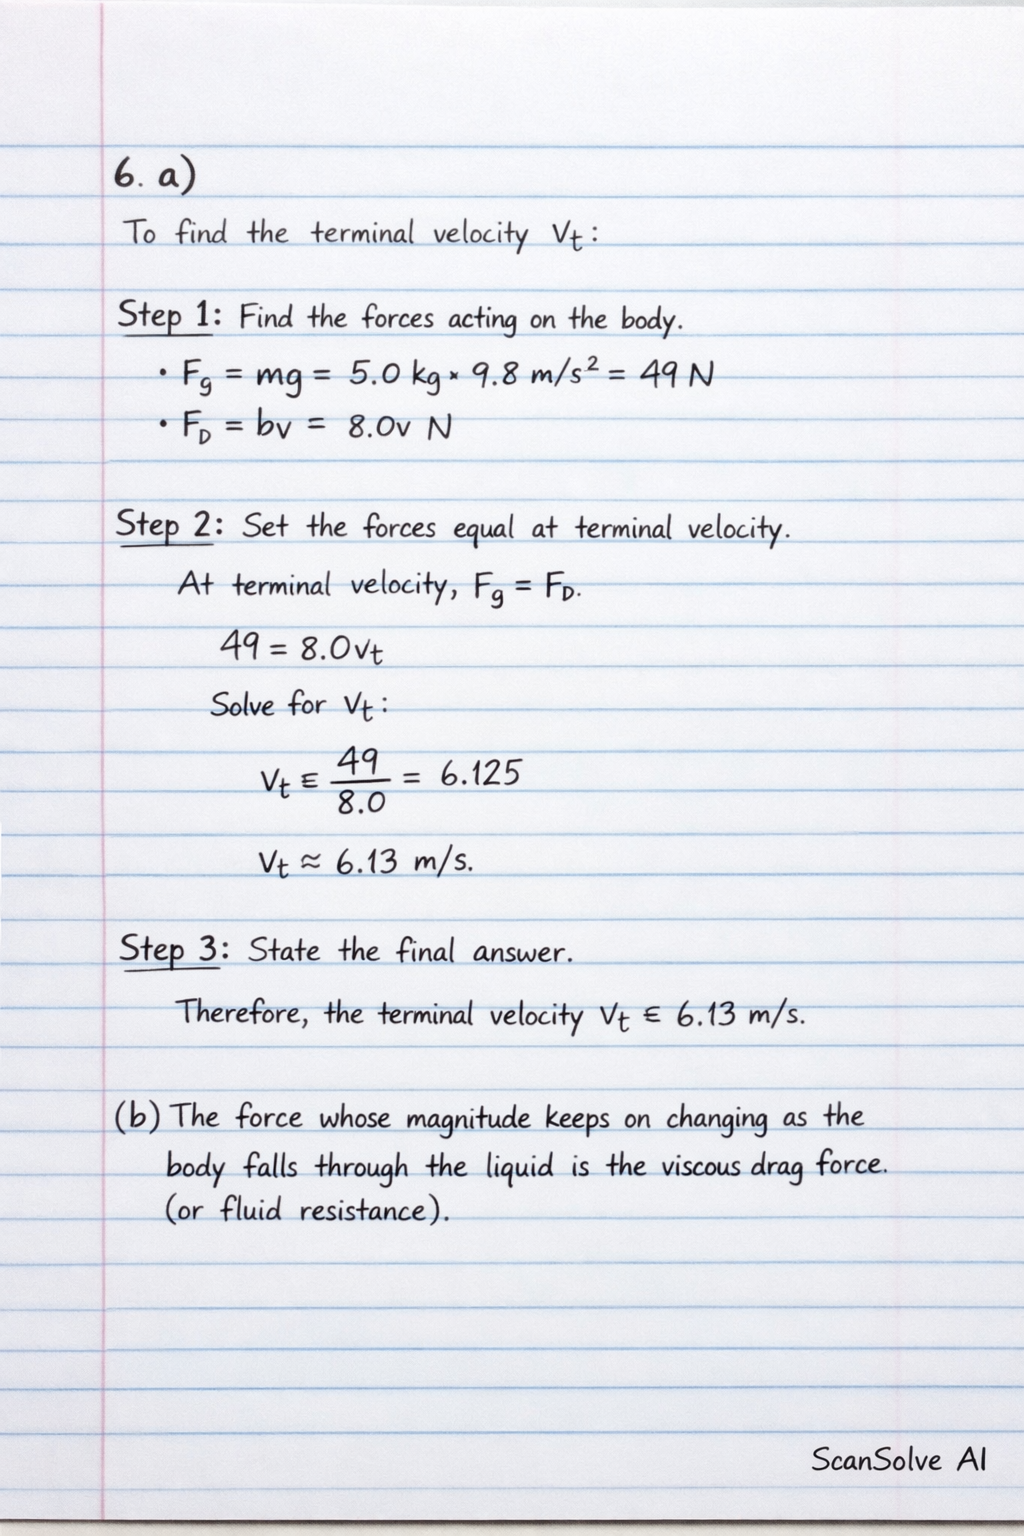 6. a)
To find the terminal velocity Vt:
Step 1: Find the forces acting on the body.
• Fg = mg = 5.0 kg × 9.8 m/s² = 49 N
• FD = bv = 8.0v N
Step 2: Set the forces equal at terminal velocity.
At terminal velocity, Fg = FD.
49 = 8.0vt
Solve for Vt:
Vt ∈ 49/8.0 = 6.125
Vt ≈ 6.13 m/s.
Step 3: State the final answer.
Therefore, the terminal velocity Vt ∈ 6.13 m/s.
(b) The force whose magnitude keeps on changing as the
body falls through the liquid is the viscous drag force.
(or fluid resistance).
ScanSolve AI